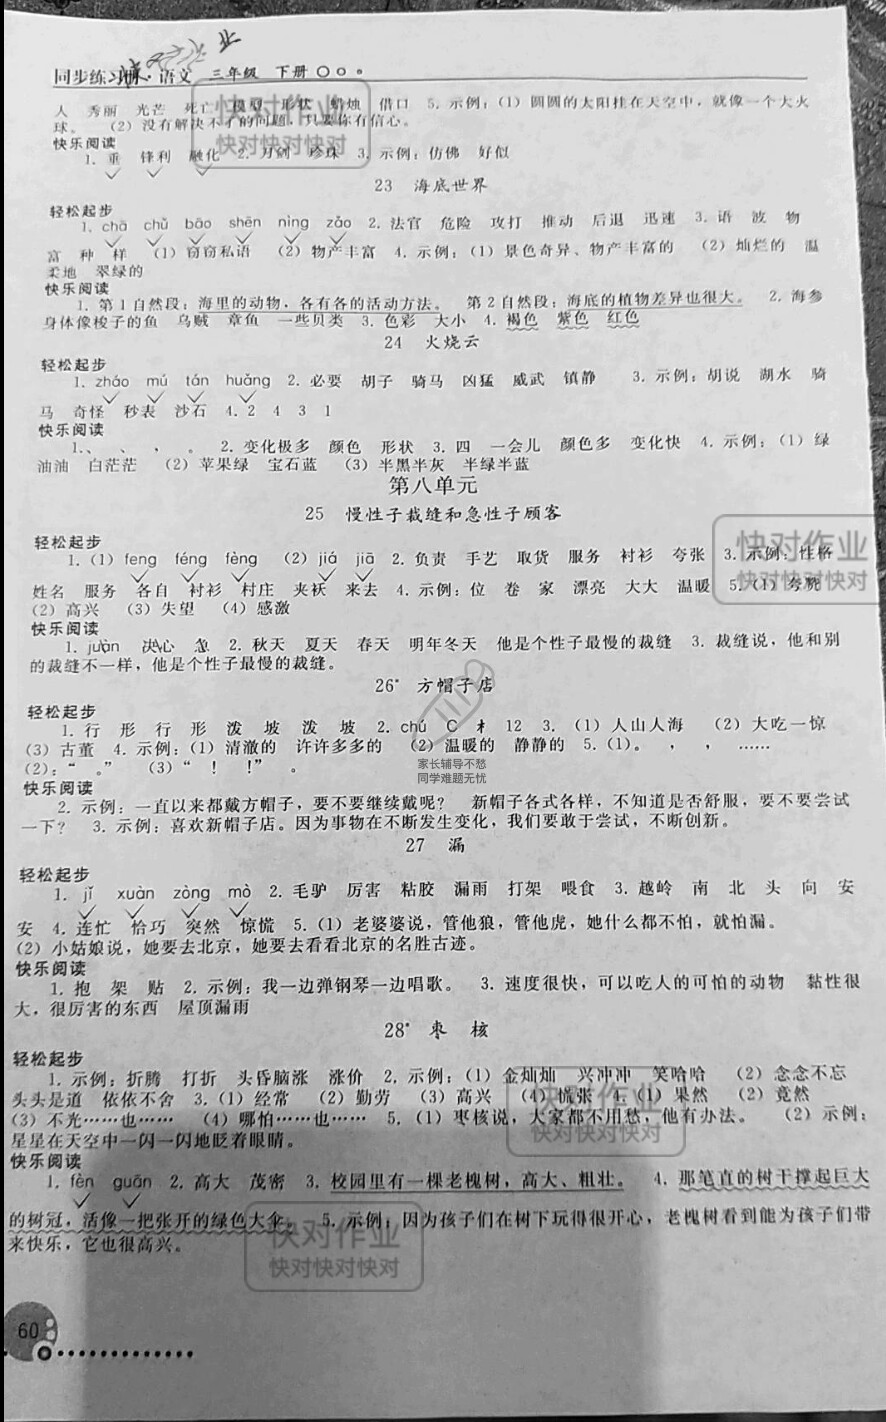 同步练习册·语文 三年级 下册
人 秀丽 光芒 死亡 模型 形状 蜡烛 借口 5. 示例：（1）圆圆的太阳挂在天空中，就像一个大火
球。 （2）没有解决不了的问题，只要你有信心。
快乐阅读
1. 重 锋利 融化 2. 刀剑 珍珠 3. 示例：仿佛 好似
23 海底世界
轻松起步
1. chā chǔ bāo shēn nìng zǎo 2. 法官 危险 攻打 推动 后退 迅速 3. 语 波 物
富 种 样 （1）窃窃私语 （2）物产丰富 4. 示例：（1）景色奇异、物产丰富的 （2）灿烂的 温
柔地 翠绿的
快乐阅读
1. 第1自然段：海里的动物，各有各的活动方法。 第2自然段：海底的植物差异也很大。 2. 海参
身体像梭子的鱼 乌贼 章鱼 一些贝类 3. 色彩 大小 4. 褐色 紫色 红色
24 火烧云
轻松起步
1. zháo mú tán huǎng 2. 必要 胡子 骑马 凶猛 威武 镇静 3. 示例：胡说 湖水 骑
马 奇怪 秒表 沙石 4. 2 4 3 1
快乐阅读
1. 、 、 ， 。 2. 变化极多 颜色 形状 3. 四 一会儿 颜色多 变化快 4. 示例：（1）绿
油油 白茫茫 （2）苹果绿 宝石蓝 （3）半黑半灰 半绿半蓝
第八单元
25 慢性子裁缝和急性子顾客
轻松起步
1.（1）feng féng fèng （2）jiá jiā 2. 负责 手艺 取货 服务 衬衫 夸张 3. 示例：性格
姓名 服务 各自 衬衫 村庄 夹袄 来去 4. 示例：位 卷 家 漂亮 大大 温暖 5.（1）夸
（2）高兴 （3）失望 （4）感激
快乐阅读
1. juàn 决心 急 2. 秋天 夏天 春天 明年冬天 他是个性子最慢的裁缝 3. 裁缝说，他和别
的裁缝不一样，他是个性子最慢的裁缝。
26* 方帽子店
轻松起步
1. 行 形 行 形 泼 坡 泼 坡 2. chú C 木 12 3.（1）人山人海 （2）大吃一惊
（3）古董 4. 示例：（1）清澈的 许许多多的 （2）温暖的 静静的 5.（1）。 ， ， ……
（2）：“ 。” （3）“ ！ ！” 。
家长辅导不愁
同学难题无忧
快乐阅读
2. 示例：一直以来都戴方帽子，要不要继续戴呢？ 新帽子各式各样，不知道是否舒服，要不要尝试
一下？ 3. 示例：喜欢新帽子店。因为事物在不断发生变化，我们要敢于尝试，不断创新。
27 漏
轻松起步
1. jǐ xuàn zòng mò 2. 毛驴 厉害 粘胶 漏雨 打架 喂食 3. 越岭 南 北 头 向 安
安 4. 连忙 恰巧 突然 惊慌 5.（1）老婆婆说，管他狼，管他虎，她什么都不怕，就怕漏。
（2）小姑娘说，她要去北京，她要去看看北京的名胜古迹。
快乐阅读
1. 抱 架 贴 2. 示例：我一边弹钢琴一边唱歌。 3. 速度很快，可以吃人的可怕的动物 黏性很
大，很厉害的东西 屋顶漏雨
28* 枣 核
轻松起步
1. 示例：折腾 打折 头昏脑涨 涨价 2. 示例：（1）金灿灿 兴冲冲 笑哈哈 （2）念念不忘
头头是道 依依不舍 3.（1）经常 （2）勤劳 （3）高兴 （4）慌张 4.（1）果然 （2）竟然
（3）不光……也…… （4）哪怕……也…… 5.（1）枣核说，大家都不用愁，他有办法。 （2）示例：
星星在天空中一闪一闪地眨着眼睛。
快乐阅读
1. fèn guān 2. 高大 茂密 3. 校园里有一棵老槐树，高大、粗壮。 4. 那笔直的树干撑起巨大
的树冠，活像一把张开的绿色大伞。 5. 示例：因为孩子们在树下玩得很开心，老槐树看到能为孩子们带
来快乐，它也很高兴。
60
快对作业
快对快对快对
快对作业
快对快对快对
快对作业
快对快对快对
快对作业
快对快对快对